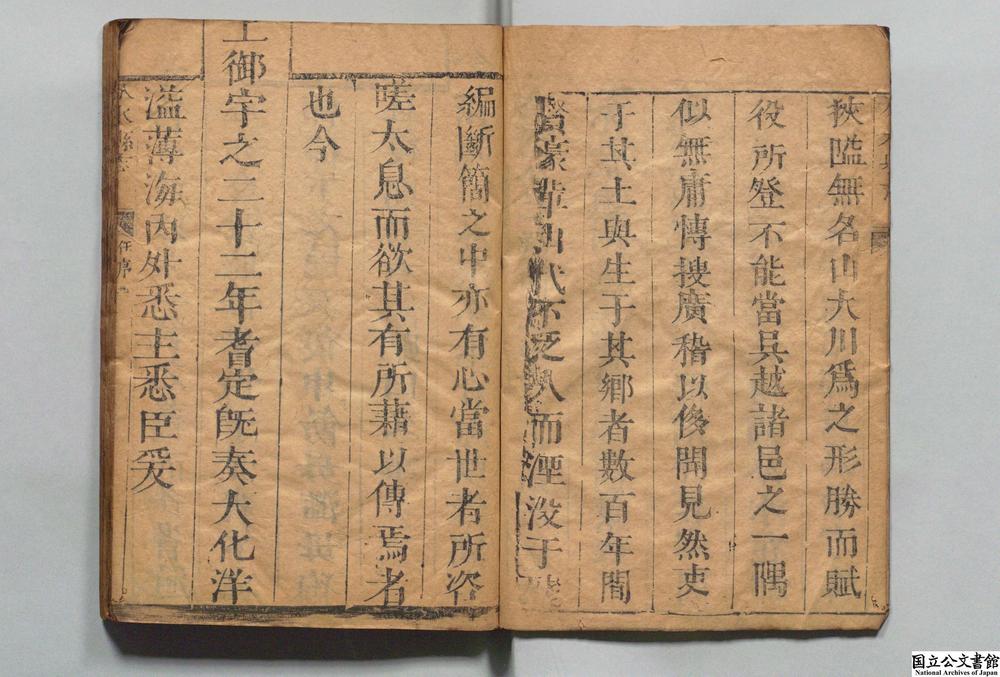 狹隘無名山大川爲之形勝而賦
役所登不能當吳越諸邑之一隅
似無庸慱搜廣稽以後聞見然吏
于其土與生于其鄉者數百年間
賢豪輩出代不乏人而湮沒于
編斷簡之中亦有心當世者所咨
嗟太息而欲其有所藉以傳焉者
也今
上御宇之二十二年耆定旣奏大化洋
溢薄海內外悉主悉臣爰
任序
国立公文書館
National Archives of Japan